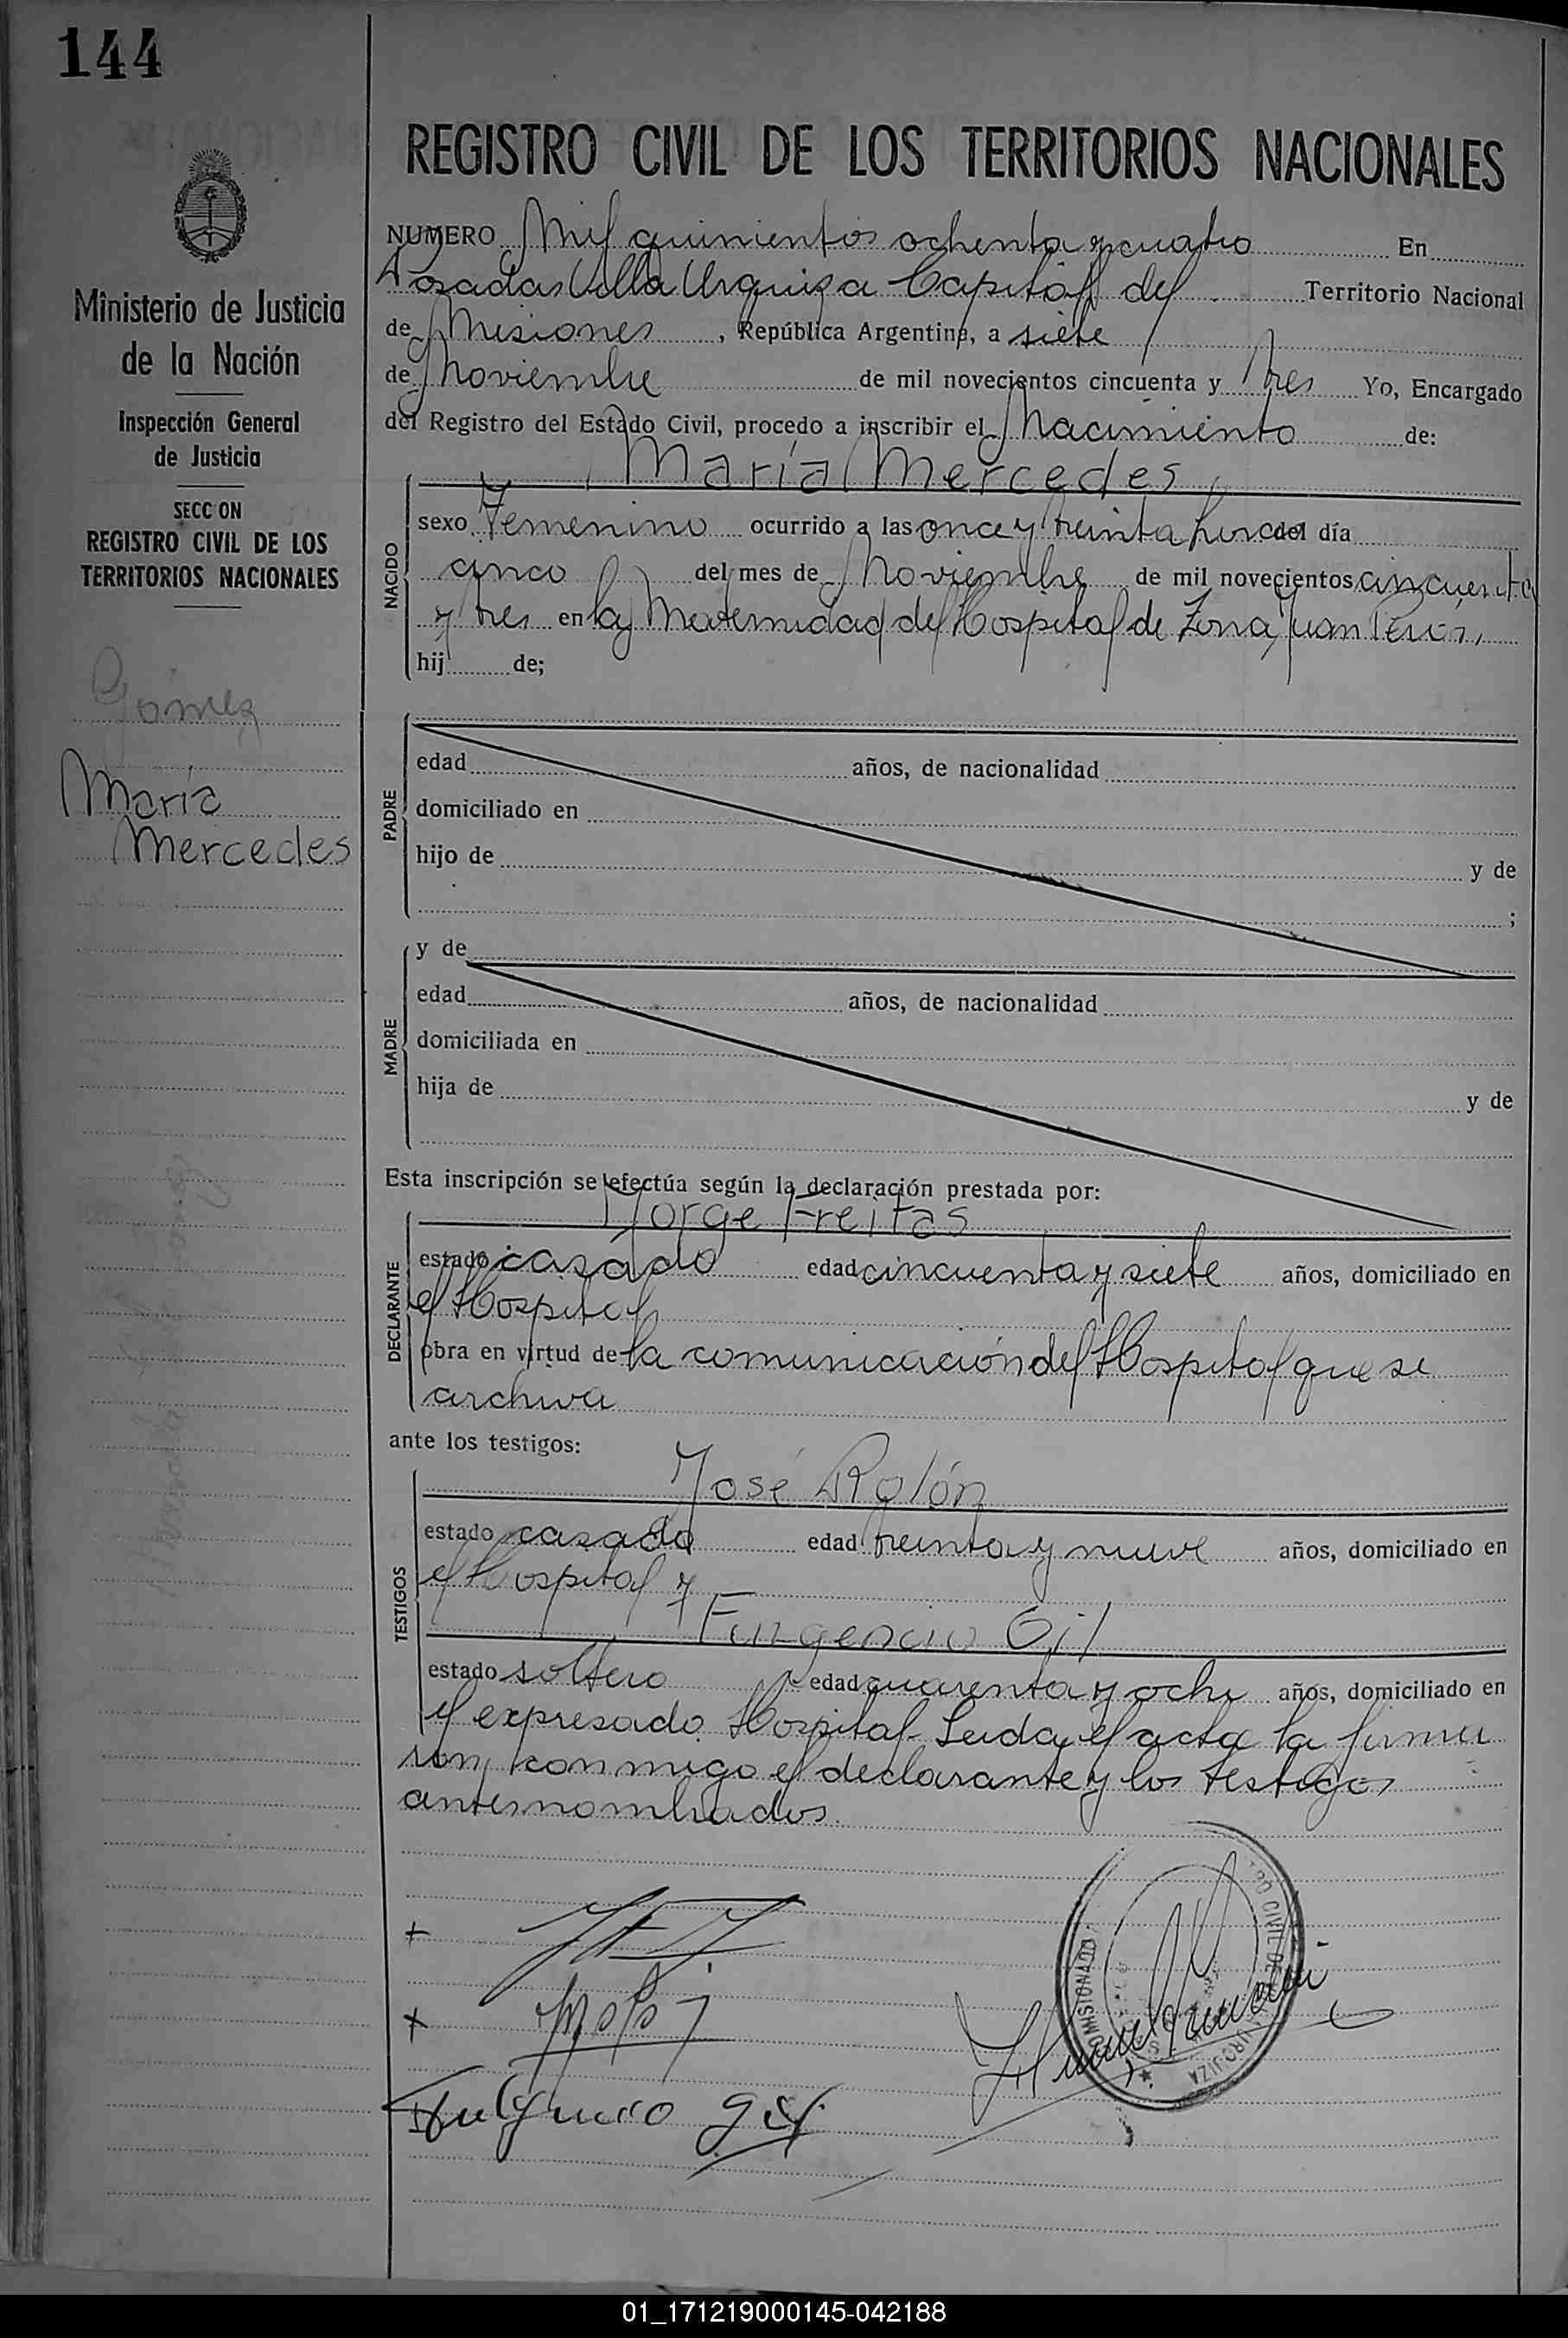 144
Ministerio de Justicia
de la Nación
Inspección General
de Justicia
SECC ON
REGISTRO CIVIL DE LOS
TERRITORIOS NACIONALES
Gómez
María
Mercedes
REGISTRO CIVIL DE LOS TERRITORIOS NACIONALES
NUMERO Mil quinientos ochenta y cuatro En
Posadas Villa Urquiza Capital del Territorio Nacional
de Misiones, República Argentina, a siete
de Noviembre de mil novecientos cincuenta y tres Yo, Encargado
del Registro del Estado Civil, procedo a inscribir el Nacimiento de:
María Mercedes,
NACIDO
sexo Femenino ocurrido a las once y treinta horas del día
cinco del mes de Noviembre de mil novecientos cincuenta
y tres en la Maternidad del Hospital de Zona Juan Perón,
hij de;
PADRE
edad años, de nacionalidad
domiciliado en
hijo de y de
;
MADRE
y de
edad años, de nacionalidad
domiciliada en
hija de y de
Esta inscripción se efectúa según la declaración prestada por:
Jorge Freitas
DECLARANTE
estado casado edad cincuenta y siete años, domiciliado en
el Hospital
obra en virtud de la comunicación del Hospital que se
archiva
ante los testigos:
José Rolón
TESTIGOS
estado casado edad treinta y nueve años, domiciliado en
el Hospital y
Fungencio Gil
estado soltero edad cuarenta y ocho años, domiciliado en
el expresado Hospital. Leida el acta la firma
ron conmigo el declarante y los testigos
antesnombrados.
Fulgencio Gil
COMISIONADO
CIVIL DE
URQUIZA
01_171219000145-042188